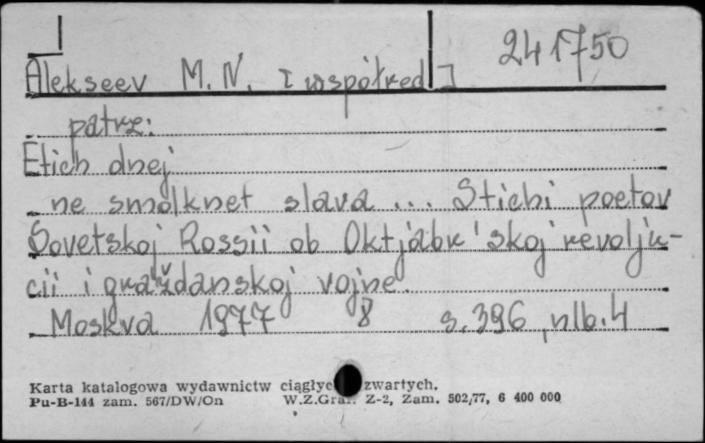 241750
Alekseev M. N. [współred.]
patrz:
Etich dnej
ne smolknet slava ... Stichi poetov
Sovetskoj Rossii ob Oktjabr'skoj revolju-
cii i graždanskoj vojne.
Moskva 1977 8 s. 396, nlb. 4
Karta katalogowa wydawnictw zwartych.
Pu-B-144 zam. 567/DW/On W.Z.Graf. Z-2, Zam. 502/77, 6 400 000